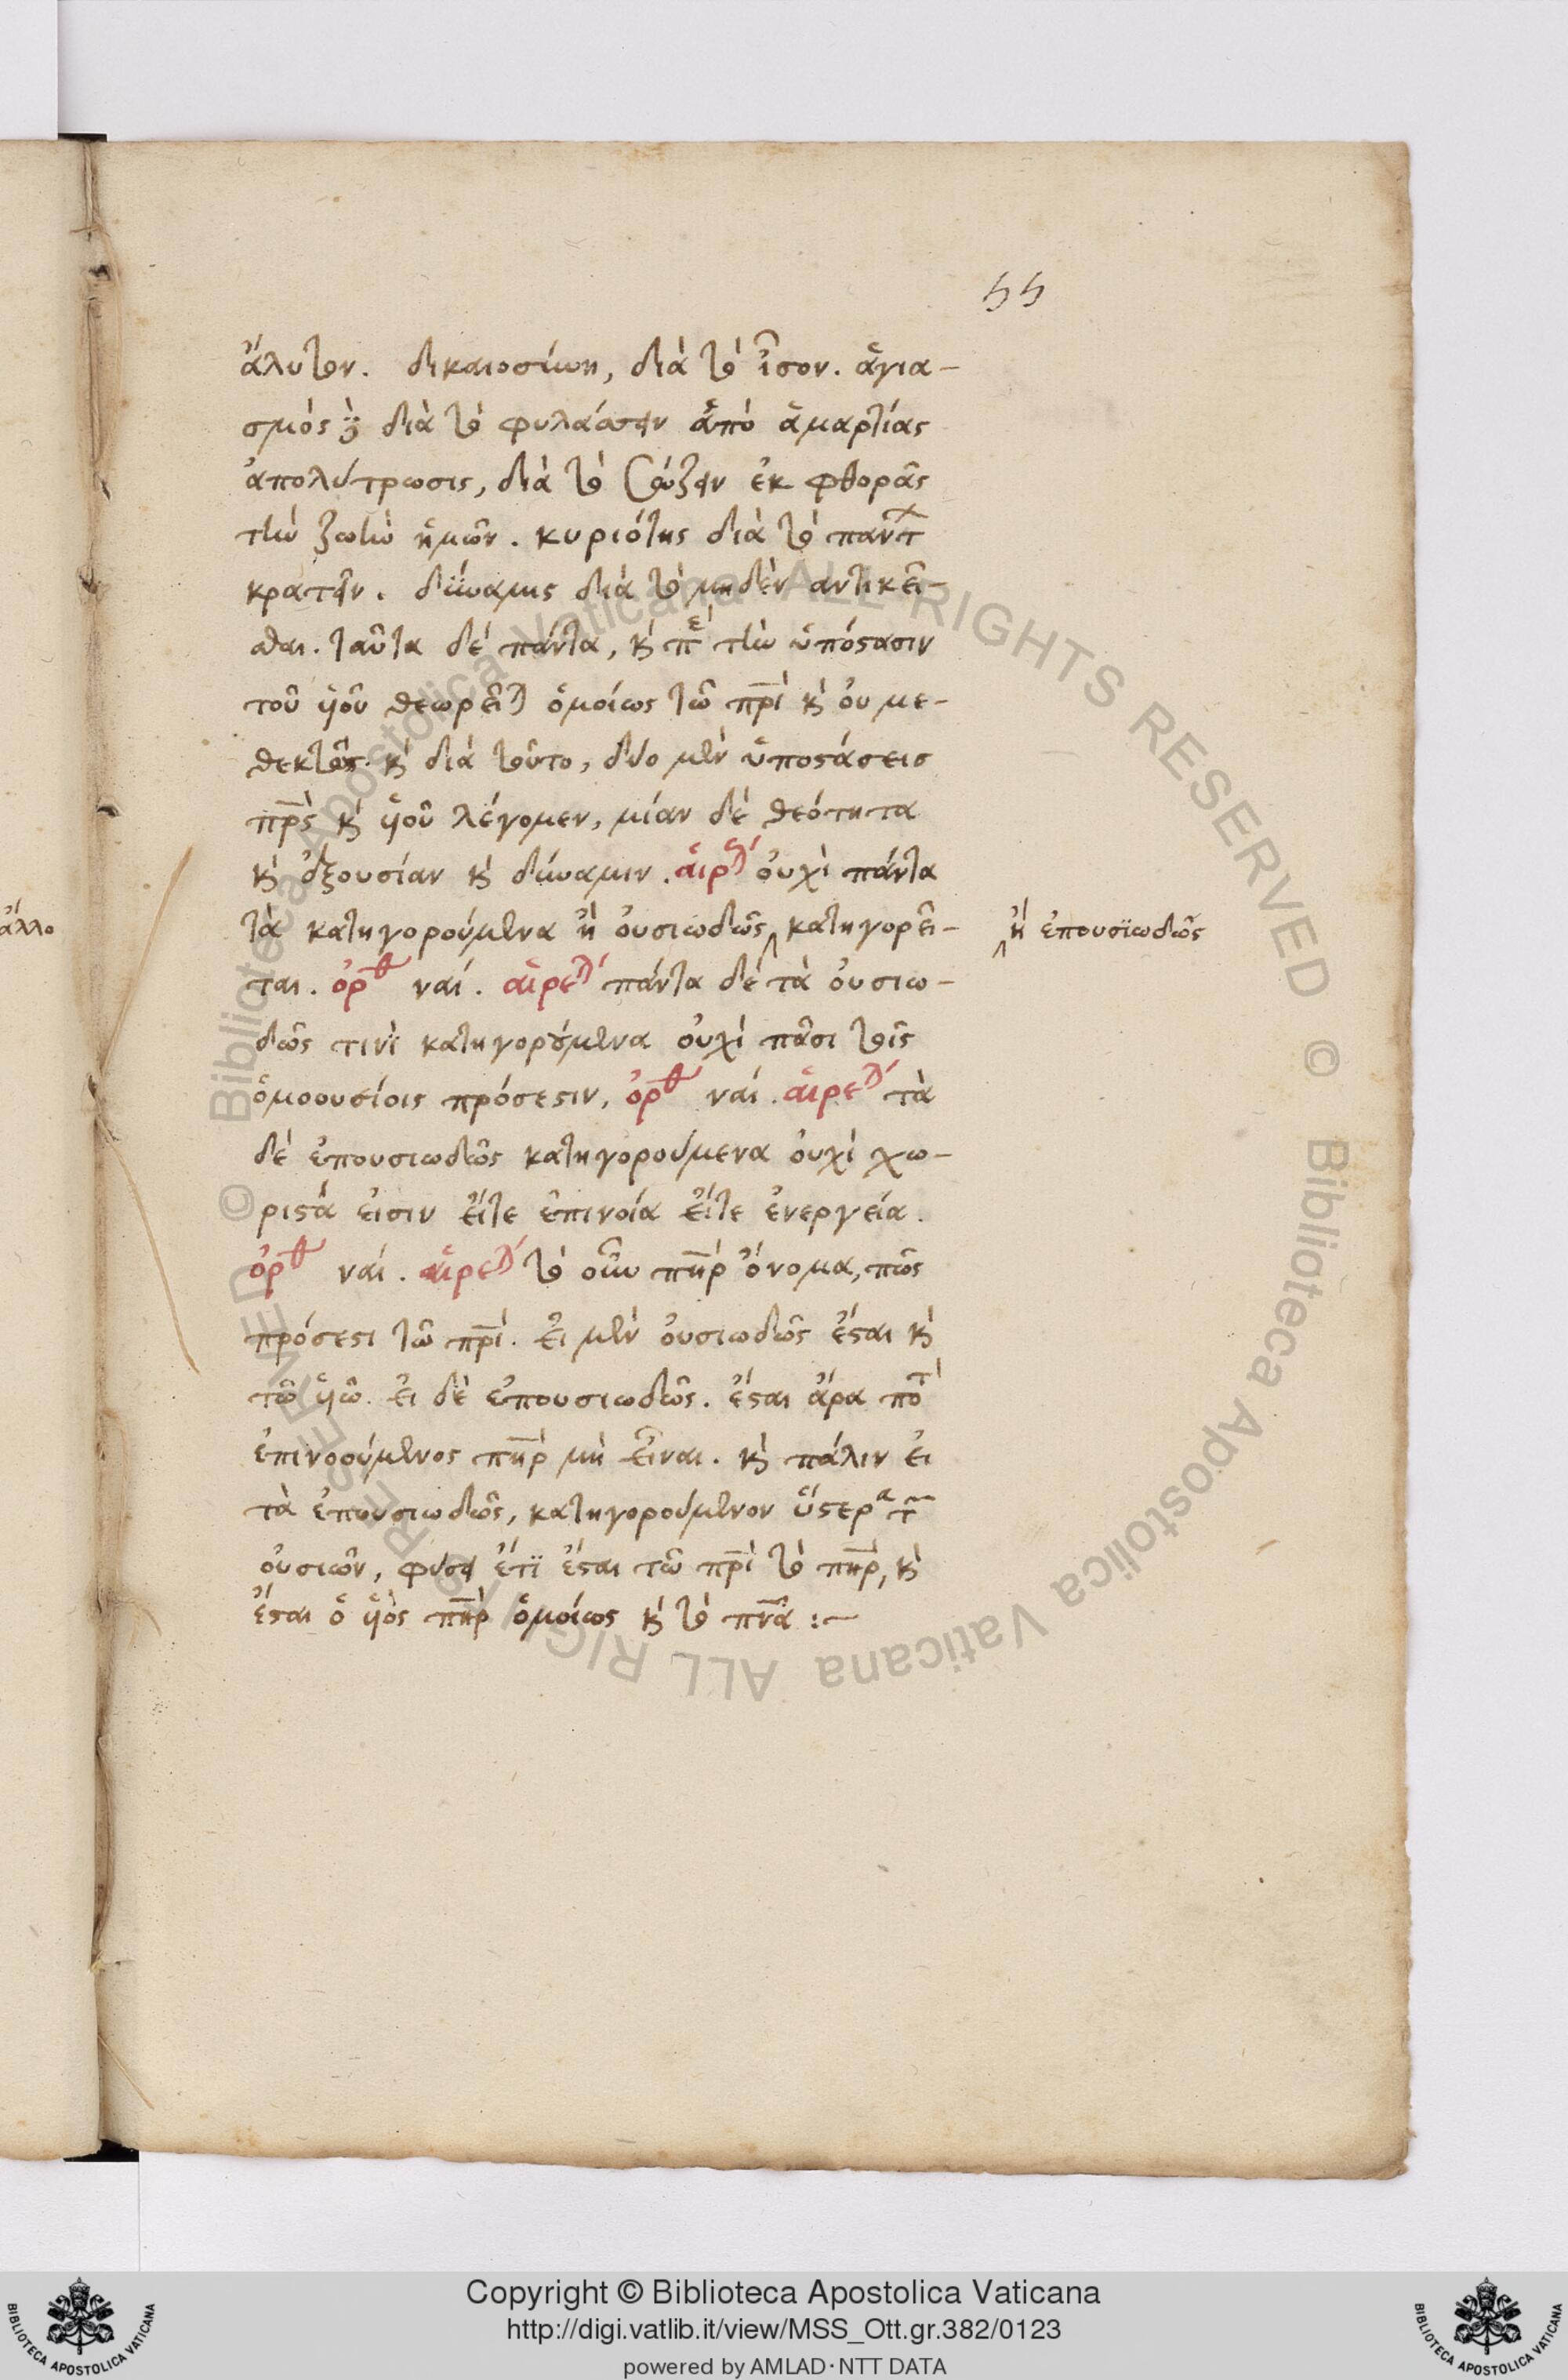 55
ἄλυτον. δικαιοσύνη, διὰ τὸ ἶσον. ἁγια-
σμός διὰ τὸ φυλάσσειν ἀπὸ ἁμαρτίας
ἀπολύτρωσις, διὰ τὸ σώζειν ἐκ φθορᾶς
τὴν ζωὴν ἡμῶν. κυριότης διὰ τὸ παντ
κρατεῖν. δύναμις διὰ τὸ μηδὲν αντικεῖ-
σθαι. ταῦτα δὲ πάντα, κὶ πε τὴν ὑπόστασιν
τοῦ υἱοῦ θεωρεῖται ὁμοίως τῶ πρὶ κὶ οὐ με-
θεκτῶς. κὶ διὰ τοῦτο, δύο μὲν ὑποστάσεισ
πρς κὶ υἱοῦ λέγομεν, μίαν δὲ θεότητα
κὶ ἐξουσίαν κὶ δύναμιν. αἱρε οὐχὶ πάντα
τὰ κατηγορούμενα ἢ οὐσιωδῶς κατηγορεῖ-
ἢ ἐπουσϊωδῶς
ται. ὀρθ ναί. αἱρε πάντα δὲ τὰ οὐσιω-
δῶς τινὶ κατηγορούμενα οὐχὶ πᾶσι τοῖς
ὁμοουσίοις πρόσεστιν, ὀρθ ναί. αἱρε τὰ
δὲ ἐπουσιωδῶς κατηγορούμενα οὐχὶ χω-
ριστά εἰσιν εἴτε ἐπινοία εἴτε ἐνεργεία.
ὀρθ ναί. αἱρε τὸ οὖν πὴρ ὄνομα, πῶς
πρόσεστι τῶ πρὶ. εἰ μὲν οὐσιωδῶς ἔσται κὶ
τῶ υἱῶ. εἰ δὲ ἐπουσιωδῶς. ἔσται ἄρα ποτὲ
ἐπινοούμενος πὴρ μὴ εἶναι. κὶ πάλιν εἰ
τὰ ἐπουσιωδῶς, κατηγορούμενον ὕστερα τ
οὐσιῶν, φύσει ἔτϊ ἔσται τῶ πρὶ τὸ πὴρ, κὶ
ἔσται ὁ υἱὸς πὴρ ὁμοίως κὶ τὸ πνα :—
άλλο
Copyright © Biblioteca Apostolica Vaticana
http://digi.vatlib.it/view/MSS_Ott.gr.382/0123
powered by AMLAD·NTT DATA
BIBLIOTECA APOSTOLICA VATICANA
BIBLIOTECA APOSTOLICA VATICANA
© Biblioteca Apostolica Vaticana ALL RIGHTS RESERVED © Biblioteca Apostolica Vaticana ALL RIGHTS RESERVED